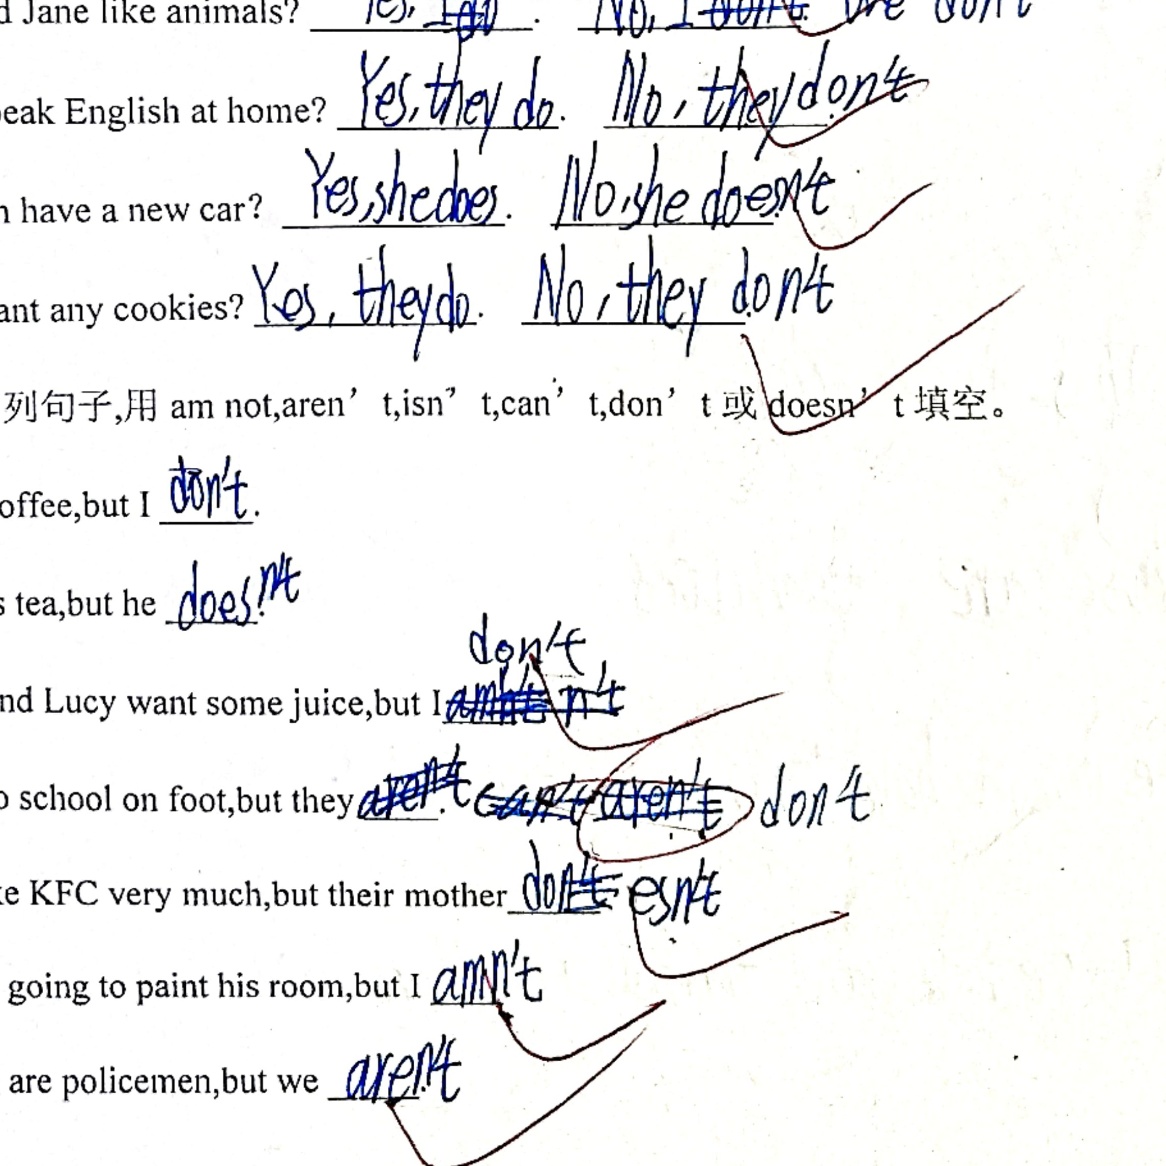 d Jane like animals? Yes, I do. No, we don't
peak English at home? Yes, they do. No, they don't
n have a new car? Yes, she does. No, she doesn't
ant any cookies? Yes, they do. No, they don't
列句子,用 am not,aren’ t,isn” t,can’ t,don’ t 或 doesn’ t 填空。
offee,but I don't.
s tea,but he doesn't
don't
nd Lucy want some juice,but I
o school on foot,but they aren't can't aren't don't
ke KFC very much,but their mother don't esn't
going to paint his room,but I amn't
are policemen,but we aren't